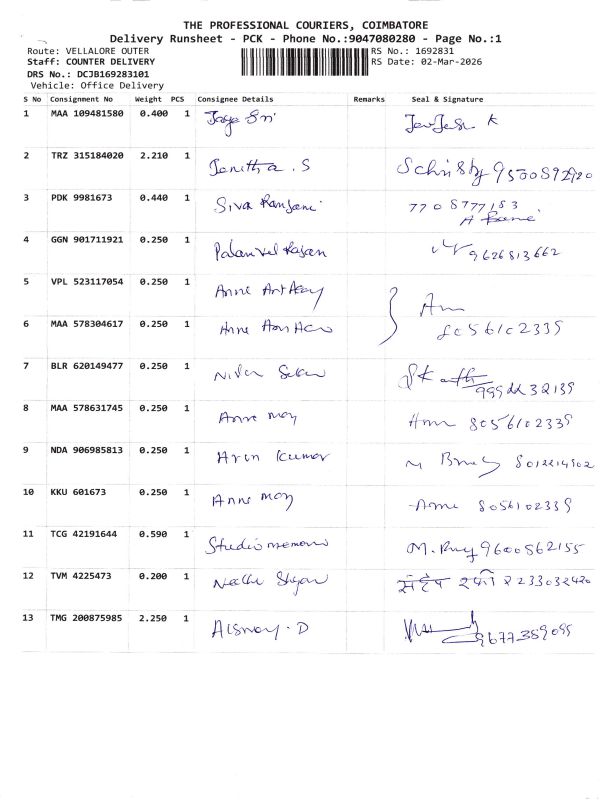 THE PROFESSIONAL COURIERS, COIMBATORE
Delivery Runsheet - PCK - Phone No.:9047080280 - Page No.:1
Route: VELLALORE OUTER
RS No.: 1692831
Staff: COUNTER DELIVERY
RS Date: 02-Mar-2026
DRS No.: DCJB169283101
Vehicle: Office Delivery
S No Consignment No Weight PCS Consignee Details Remarks Seal & Signature
1 MAA 109481580 0.400 1 Jaya Sri K
2 TRZ 315184020 2.210 1 Jenitha . S
3 PDK 9981673 0.440 1 Siva Ranjani 7708777153
4 GGN 901711921 0.250 1 Palanivel Rajan 9626813662
5 VPL 523117054 0.250 1 Anne Antony
6 MAA 578304617 0.250 1 Anne 8056102339
7 BLR 620149477 0.250 1
8 MAA 578631745 0.250 1 Anne Mary 8056102339
9 NDA 906985813 0.250 1 Arun Kumar
10 KKU 601673 0.250 1 Anne Mary Anne 8056102339
11 TCG 42191644 0.590 1 Studio memories 9600562155
12 TVM 4225473 0.200 1
13 TMG 200875985 2.250 1 9677359095